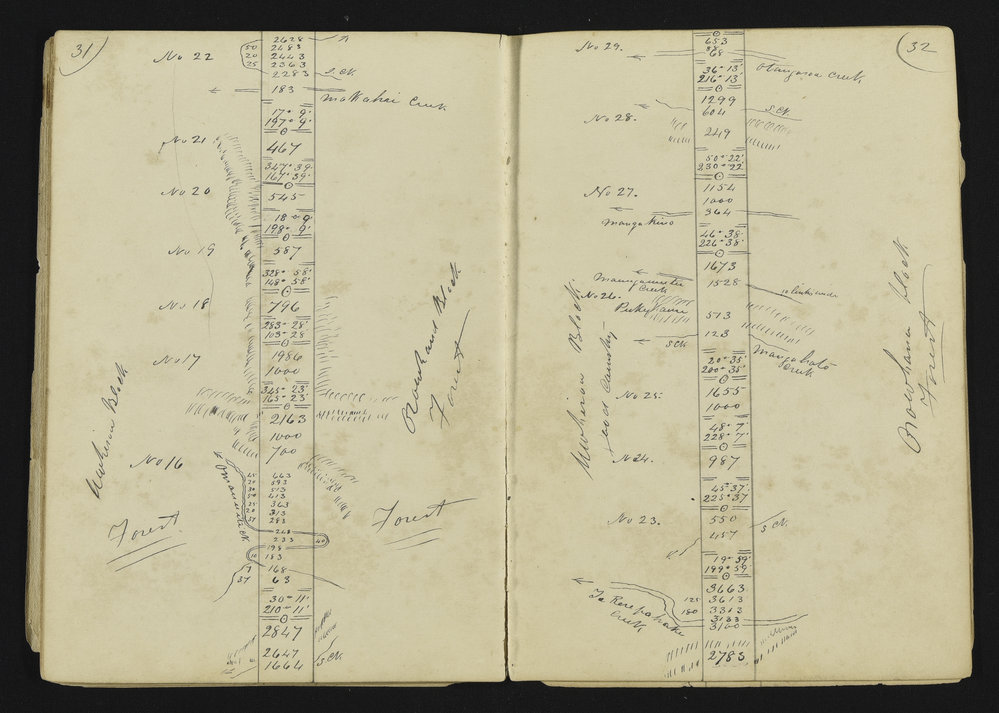 31
2628
50 2483
No 22
20 2443
25 2363
2283 S. Ck.
183
Makahu Creek
17° 9'
197° 9'
No 21
467
347° 39'
167° 39'
No 20
545
18° 9'
198° 9'
No 19
587
328° 58'
148° 58'
No 18
796
283° 28'
103° 28'
1986
No 17
1000
Block
Forest
345° 23'
165° 23'
2163
1000
700
Block
No 16
663
593
513
413
363
313
283
233
40
198
10 183
7 168
37 63
Forest
Forest
30° 11'
210° 11'
2847
2647
1664 S Ck.
32
No 29.
653
68
Creek
36° 13'
216° 13'
1299
604 S Ck.
No 28.
249
50° 22'
230° 22'
No 27.
1154
1000
364
46° 38'
226° 38'
1673
1528
Creek
No 26.
513
S Ck.
123
Creek
20° 35'
200° 35'
No 25.
1655
1000
Block
good Country
block
Forest
48° 7'
228° 7'
No 24.
987
45° 37'
225° 37'
No 23.
550 S Ck.
457
19° 59'
199° 59'
3663
125 3613
180 3313
3133
3100
Creek
2783